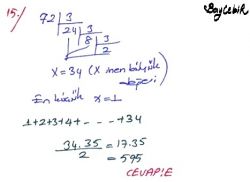 15.)
72 | 3
24 | 3
8 | 3
2
x = 34 (x inen büyük değeri)
En küçük x = 1
1+2+3+4+ - - - +34
34.35 / 2 = 17.35
= 595
CEVAP:E